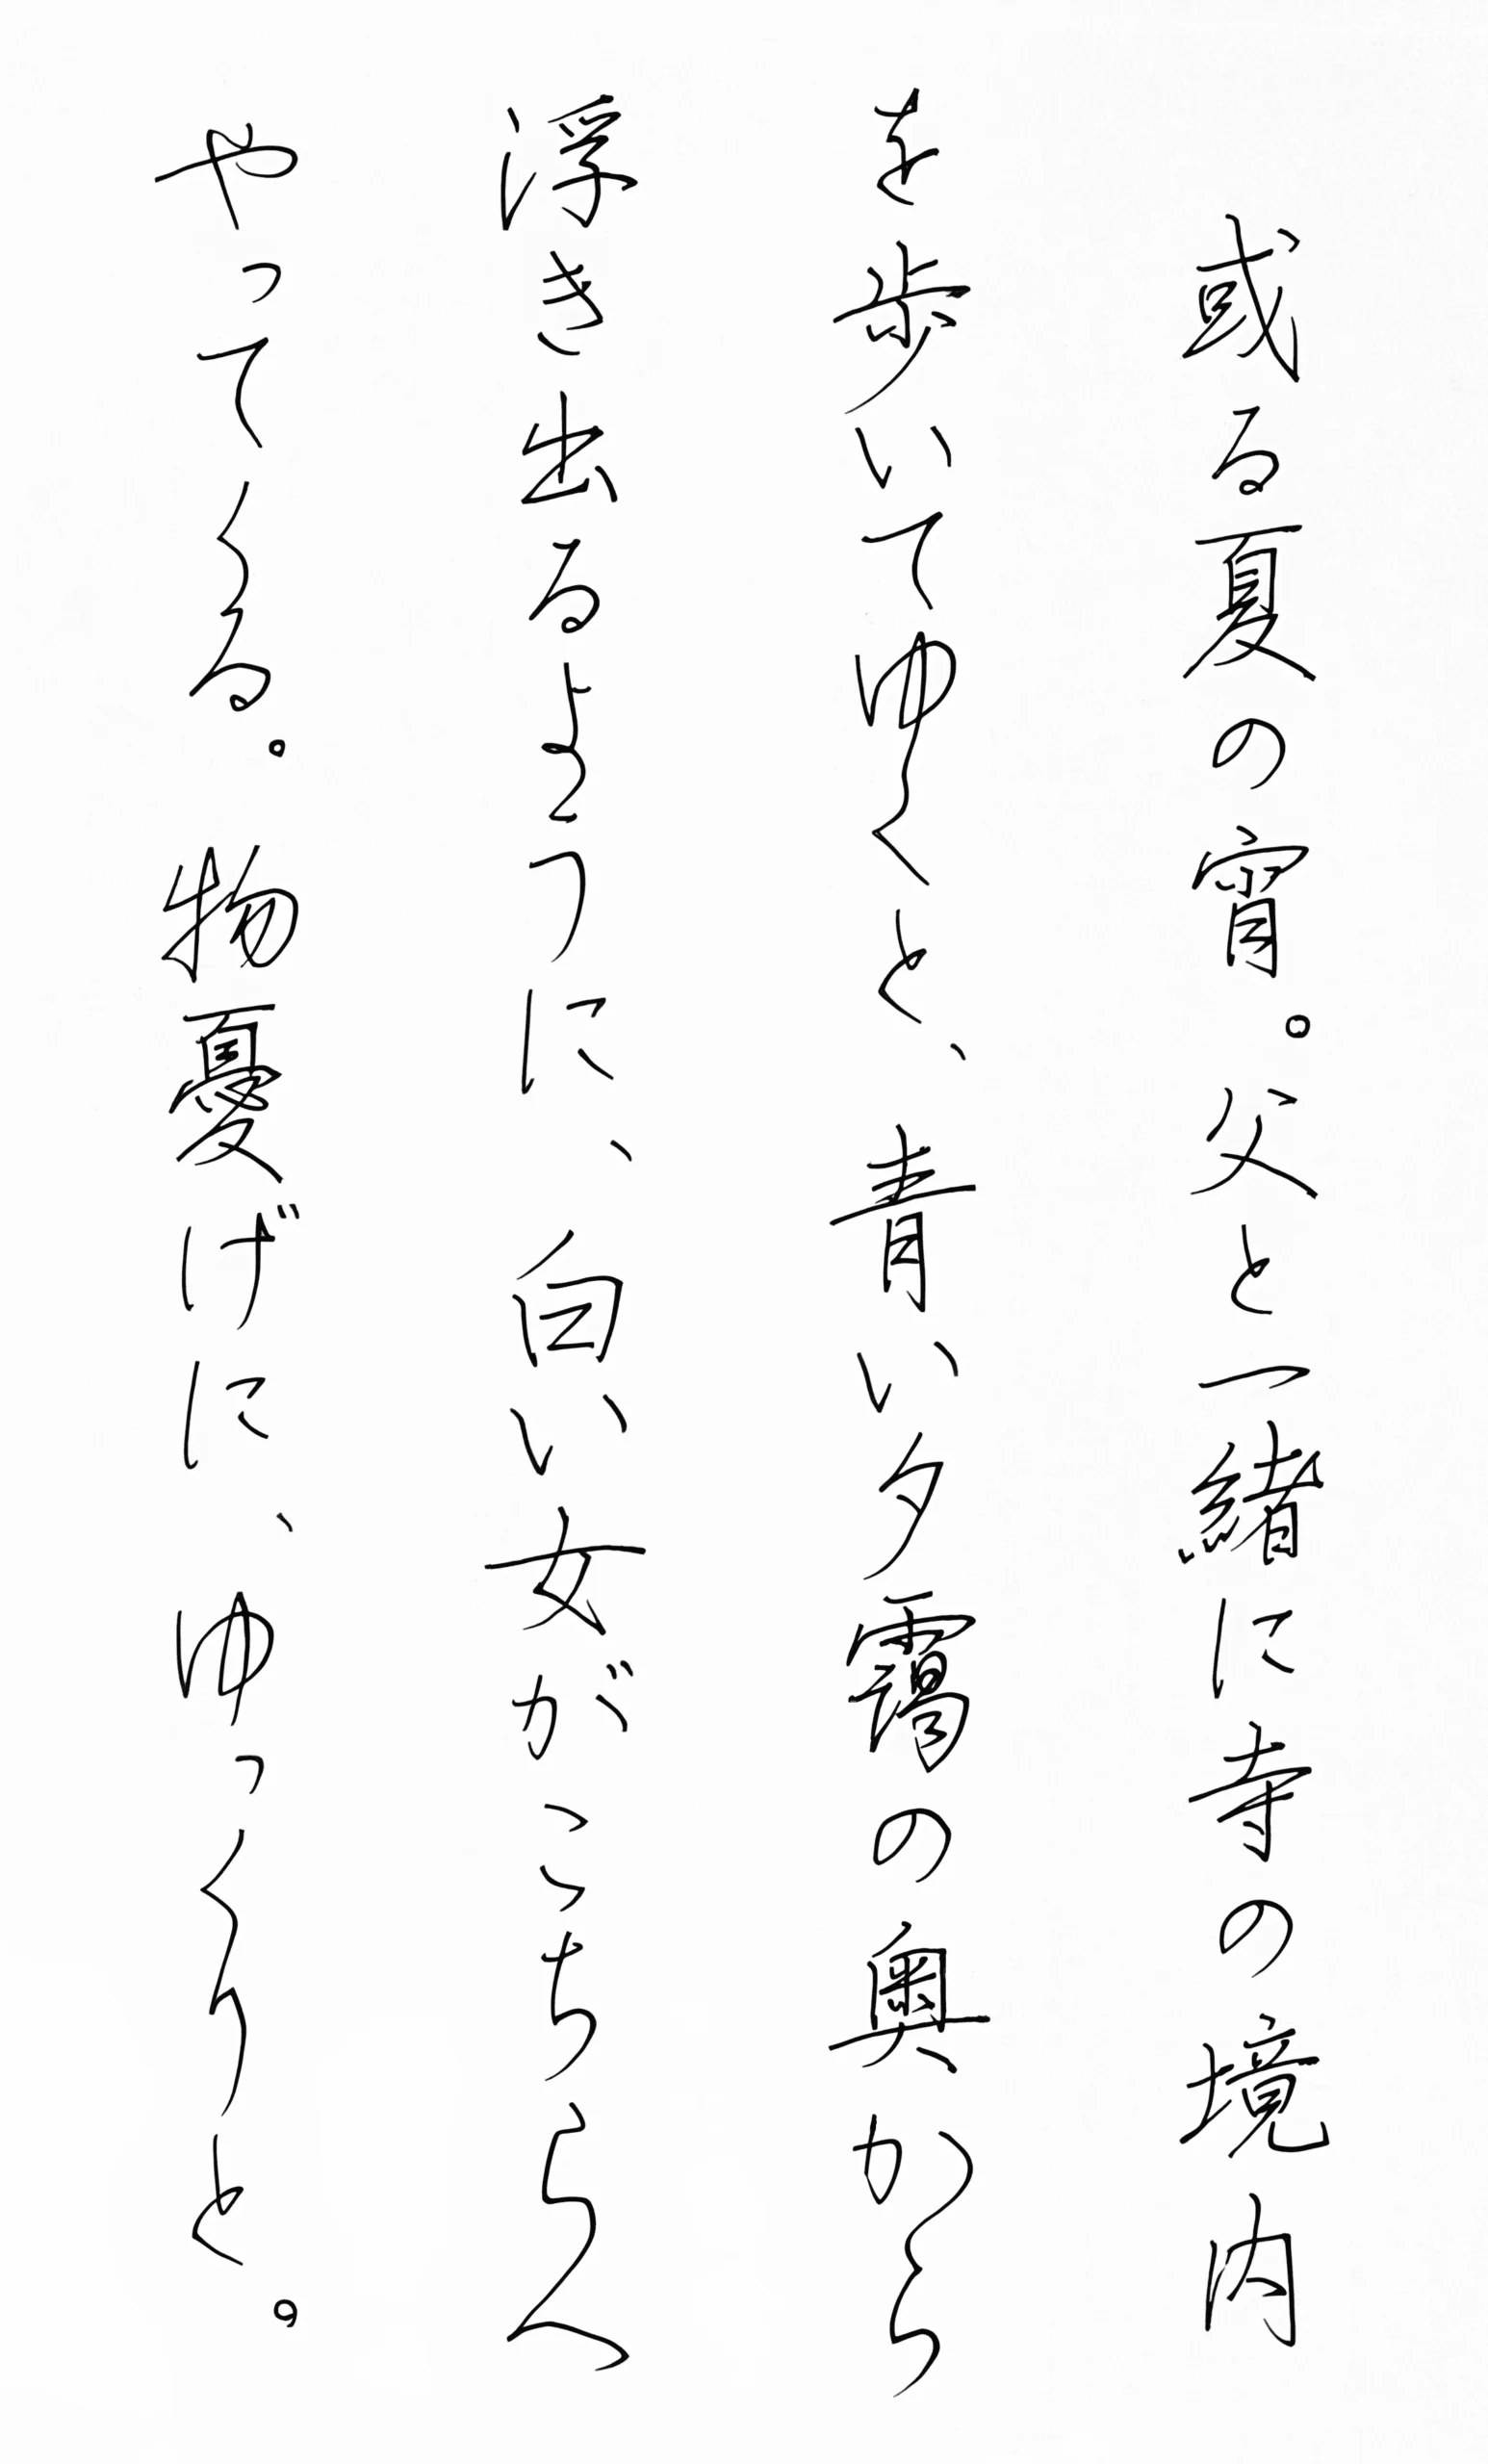 或る夏の宵。父と一緒に寺の境内
を歩いてゆくと、青い夕靄の奥から
浮き出るように、白い女がこちらへ
やってくる。物憂げに、ゆっくりと。